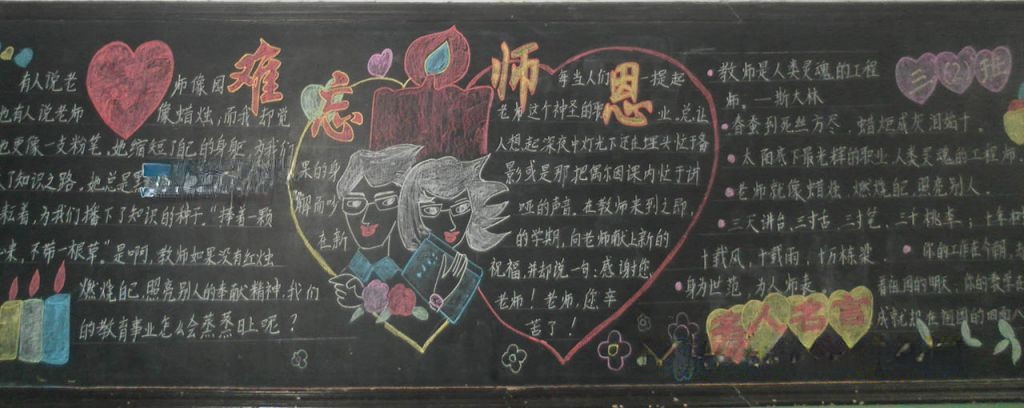 难忘师恩
有人说老师像园
也有人说老师像蜡烛,而我却觉
更像一支粉笔,她缩短了自己的身躯,为我们
了知识之路,她总是
着,为我们播下了知识的种子,"捧着一颗
来,不带一根草"是啊,教师如果没有红烛
燃烧自己,照亮别人的奉献精神,我们
的教育事业怎么会蒸蒸日上呢?
每当人们一提起
老师这个神圣的职业,总让
人想起深夜中灯光下还在埋头忙于备
课的身影或是那把偶尔因课内忙于讲
解而沙哑的声音,在教师来到之际,
在新的学期,向老师献上新的
祝福,并却说一句:感谢您
老师!老师,您辛
苦了!
三(2)班
教师是人类灵魂的工程
师。—斯大林
春蚕到死丝方尽,蜡炬成灰泪始干。
太阳底下最光辉的职业,人类灵魂的工程师
老师就像蜡烛,燃烧自己,照亮别人。
三尺讲台,三寸舌,三寸笔,三千桃李,十年树
十载风,十载雨,十万栋梁
你的工作在今朝,
身为世范,为人师表
着祖国的明天,你的
成就却在祖国的四面八
名人名言